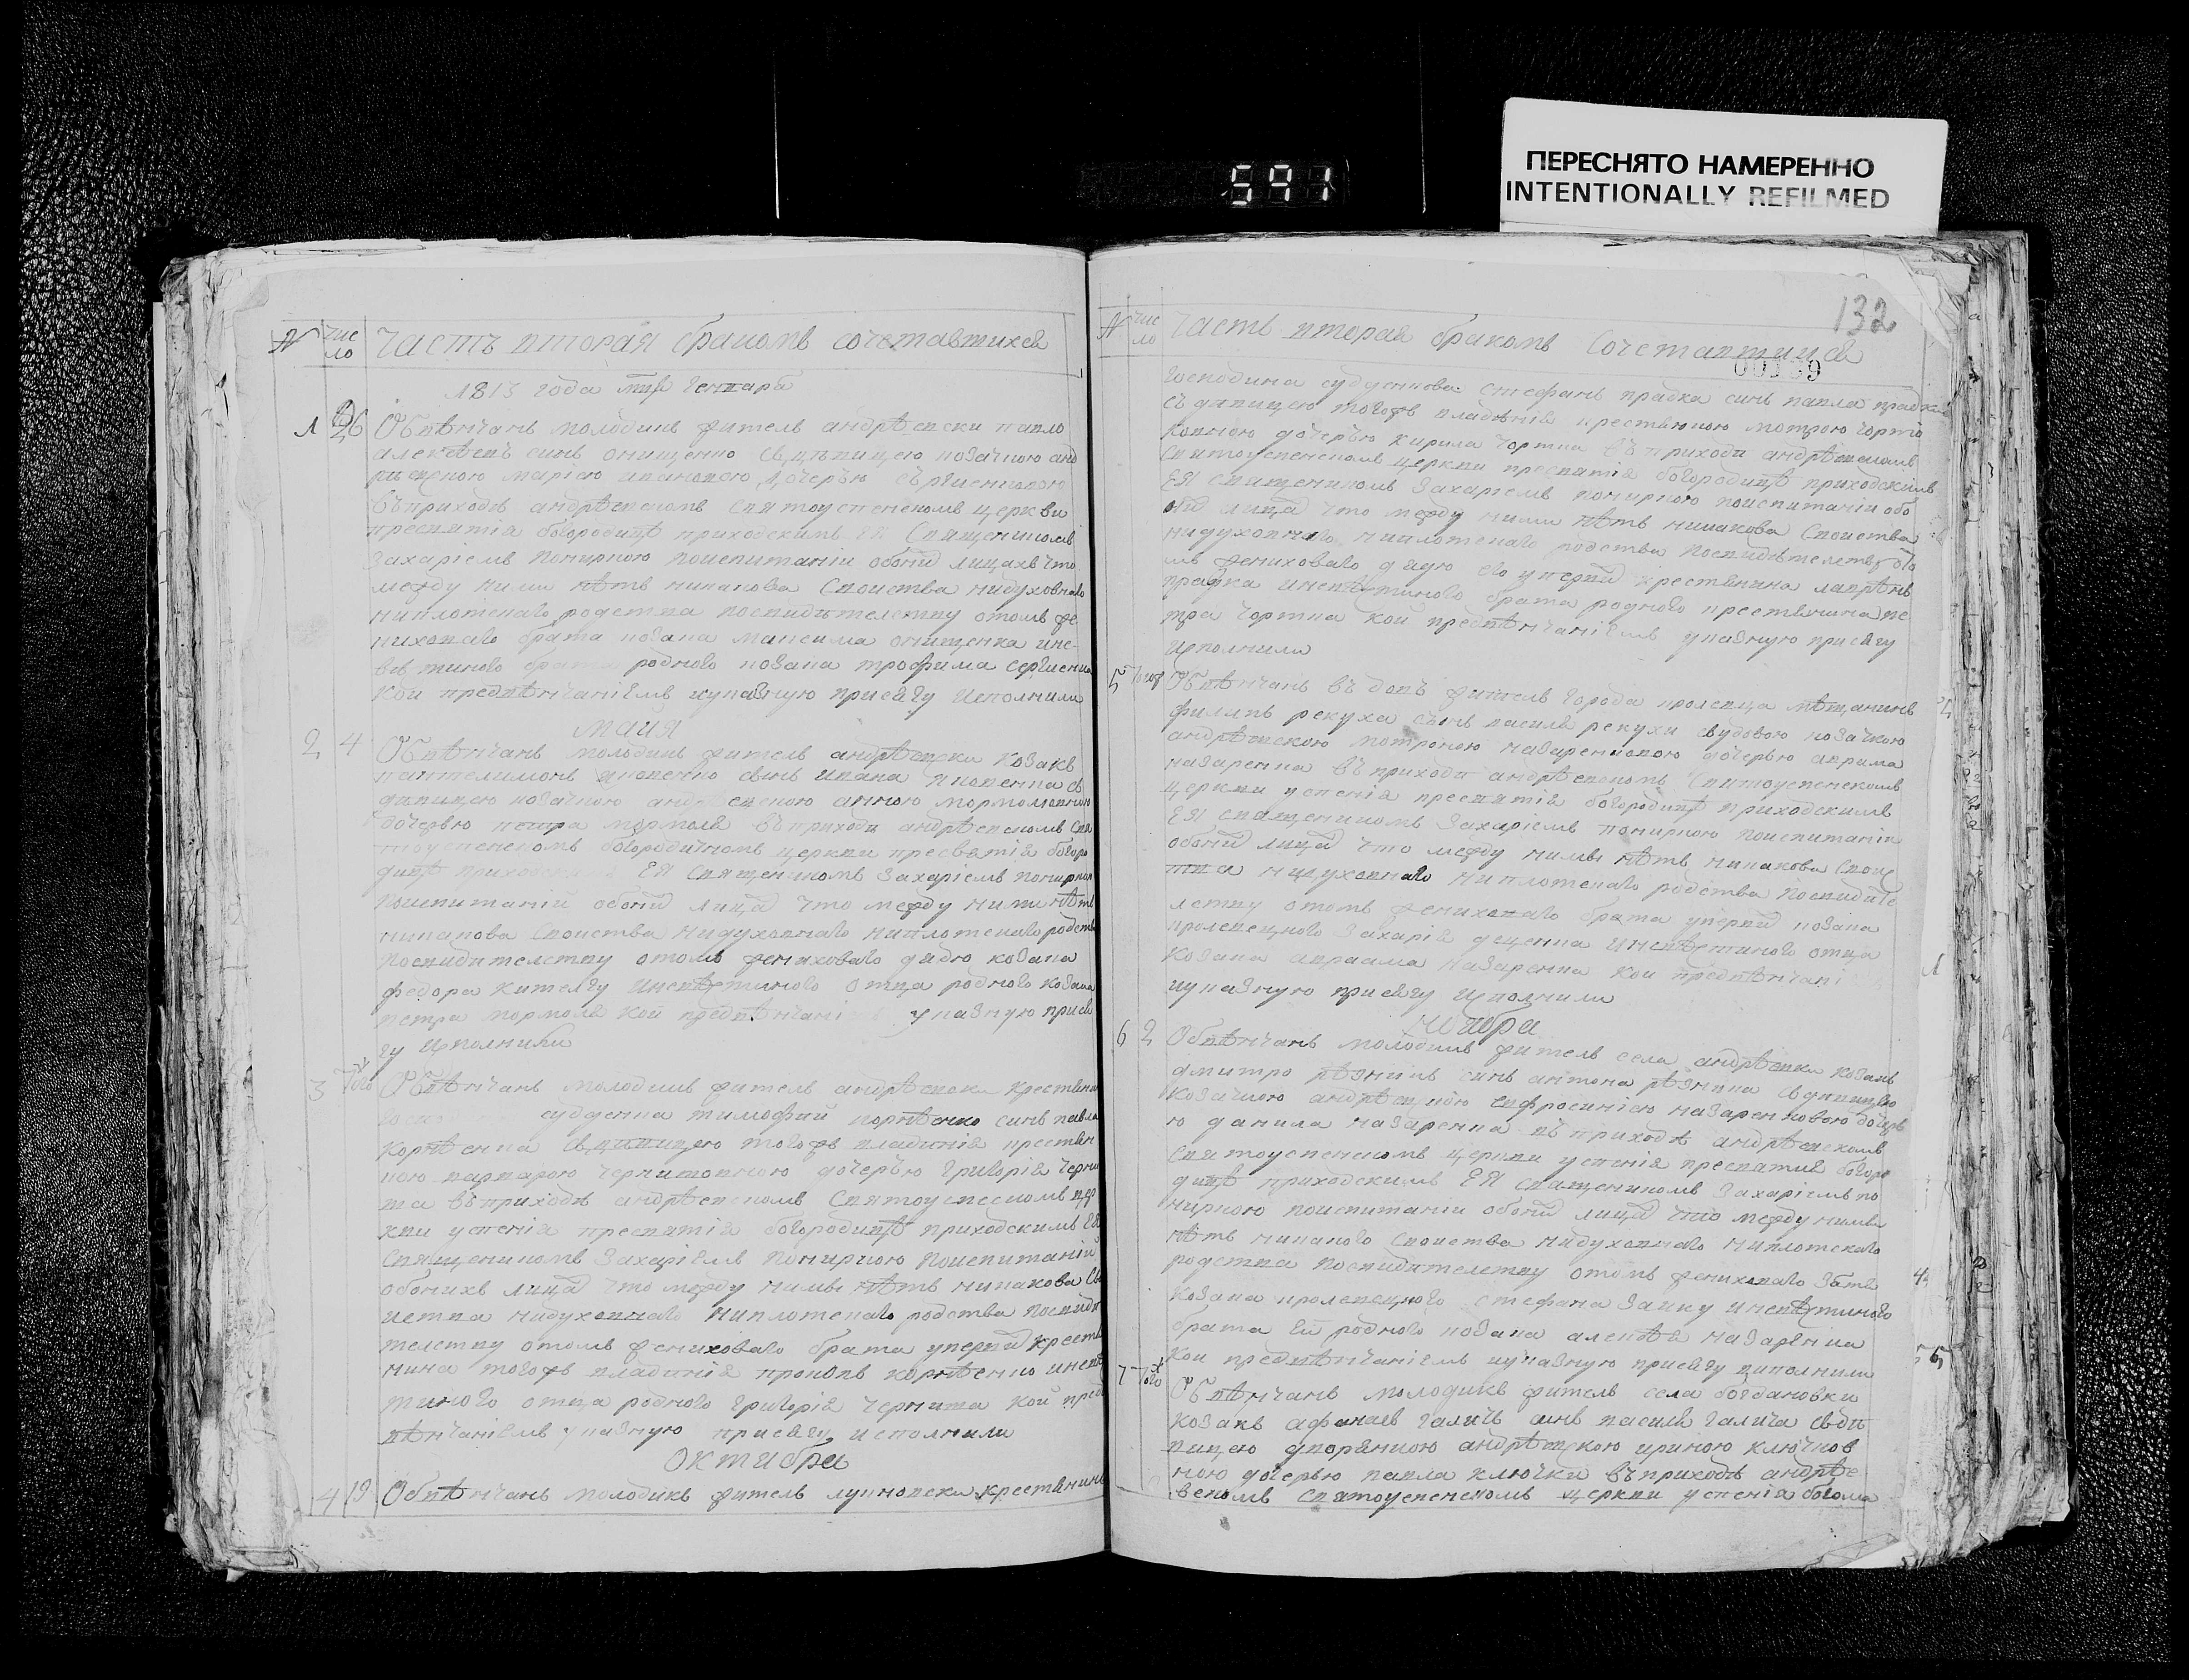 591
ПЕРЕСНЯТО НАМЕРЕННО
INTENTIONALLY REFILMED
№ число Часть вторая бракомъ сочетавшихся
1813 года мца генваря
1 26 Обвѣнчанъ молодикъ житель андрѣевски павло
алексѣевъ синъ онищенко съ дѣвицею козачкою анд
марією ивановою дочерью сѣргиенковою
въ приходѣ андрѣевскомъ Святоуспенскомъ церкви
пресвятія богородицѣ приходскимъ ЕЯ Священикомъ
Захаріемъ Кониркою поиспитаніи обоих лицахъ что
между ними нѣтъ никакова Своиства нидуховнаго
ниплотскаго родства посвидителству отомъ же
нихового брата козака максима онищенка ине
вѣстиного брата родного козака трофима сергиенка
кои предвѣнчаніемъ иуказную присягу исполнили
маия
2 4 Обвѣнчанъ молодикъ житель андрѣевски козакъ
пантелимонъ яковенко синъ ивана яковенка съ
дѣвицею козачкою андрѣевскою анною мормолювною
дочерью петра мормоля въ приходѣ андрѣевскомъ Свя
тоуспенскомъ богородичномъ церкви пресвятія богоро
дицѣ ЕЯ Священикомъ Захаріемъ Кониркою
поиспитаній обоих лицъ что между ними нѣтъ
никакова Своиства нидуховнаго ниплотскаго родств
посвидителству отомъ жениховаго дядю козака
федора инсвѣстиного отца родного козака
петра мормоля кои предвѣнчаніемъ указную прися
гу исполнили
3 того Обвѣнчанъ молодикъ житель андрѣевски крестянин
судденка тимофий корнѣенко синъ павла
Корнѣенка съ дѣвицею тогожъ владинія крестян
кою варварою чернитовною дочерью григорія черни
та въ приходѣ андрѣевскомъ Святоуспескомъ цер
кви успенія пресвятія богородицѣ приходскимъ ЕЯ
Священикомъ Захаріемъ Кониркою поиспитаній
обоихъ лицъ что между ними нѣтъ никакова Сво
иства нидуховнаго ниплотскаго родства посвиди
телству отомъ жениховаго брата крестя
нина тогожъ владинія прокопъ корнѣенко инев
стиного отца родного григорія чернита кои пред
вѣнчаніемъ указную присягу исполнили
октября
4 19 Обвѣнчанъ молодикъ житель крестянинъ
132
№ число Часть вторая бракомъ Сочетавшихся
господина судденкова Стефанъ прадка синъ павла прадки
съ дѣвицею тогожъ владѣнія крестянкою мотрою чорти
ковною дочерью кирила чортка въ приходи андрѣевскомъ
Святоуспенскомъ церкви пресвятія богородицѣ приходскимъ
ЕЯ священикомъ Захаріемъ Кониркою поиспитаніи обо
их лицъ что между ними нѣтъ никакова Своиства
нидуховнаго ниплотскаго родства посвидѣтелству ото
мъ жениховаго дядю его крестянина лаврѣнъ
прадка иневѣстиного брата родного крестянина пе
тра чортка кои предвѣнчаніемъ указную присягу
исполнили
5 тогож Обвѣнчанъ въдовъ житель города кролевца мѣщанинъ
филипъ рекуха синъ василя рекухи свудовою козачкою
андрѣевскою мотроною назаренковою дочерью аврама
назаренка въ приходи андрѣевскомъ Святоуспенскомъ
церкви успенія пресвятія богородицѣ приходскимъ
ЕЯ священикомъ Захаріемъ Кониркою поиспитаніи
обоих лицъ что между ними нѣтъ никакова Свои
тва нидуховнаго ниплотскаго родства посвидѣте
лству отомъ жениховаго брата козака
кролевецкого Захарія деценка иневѣстиного отца
козака авраама назаренка кои предвѣнчані
иуказную присягу исполнили
ноября
6 2 Обвѣнчанъ молодикъ житель села андрѣевки козакъ
дмитро рѣзникъ синъ антона рѣзника съ дѣвицею
козачкою андрѣевскою ефросиніею назаренковою дочерь
ю данила назаренка въ приходѣ андрѣевскомъ
Святоуспенскомъ церкви успенія пресвятия богоро
дицѣ приходскимъ ЕЯ священикомъ Захаріемъ Ко
ниркою поиспитаніи обоих лицъ что между ними
нѣтъ никакого Своиства нидуховнаго ниплотскаго
родства посвидителству отомъ жениховаго Зятя
козака кролевецкого стефана Заику иневѣстиного
брата Ей родного козака алексѣя назаренка
кои предвѣнчаніемъ иуказную присягу виполнили
7 того Обвѣнчанъ молодикъ житель села богдановки
козакъ афанасъ галичъ синъ василя галича съ дѣ
вицею дворянкою андрѣевскою ириною ключков
ною дочерью павла ключки въ приходѣ андрѣе
вскомъ Святоуспенскомъ церкви успенія богома